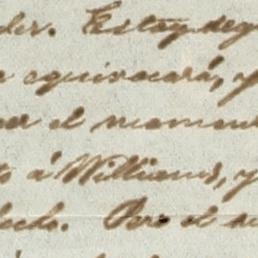 der. Estoy seg
equivocará, y
el momen
to á Williams, y
Pero el